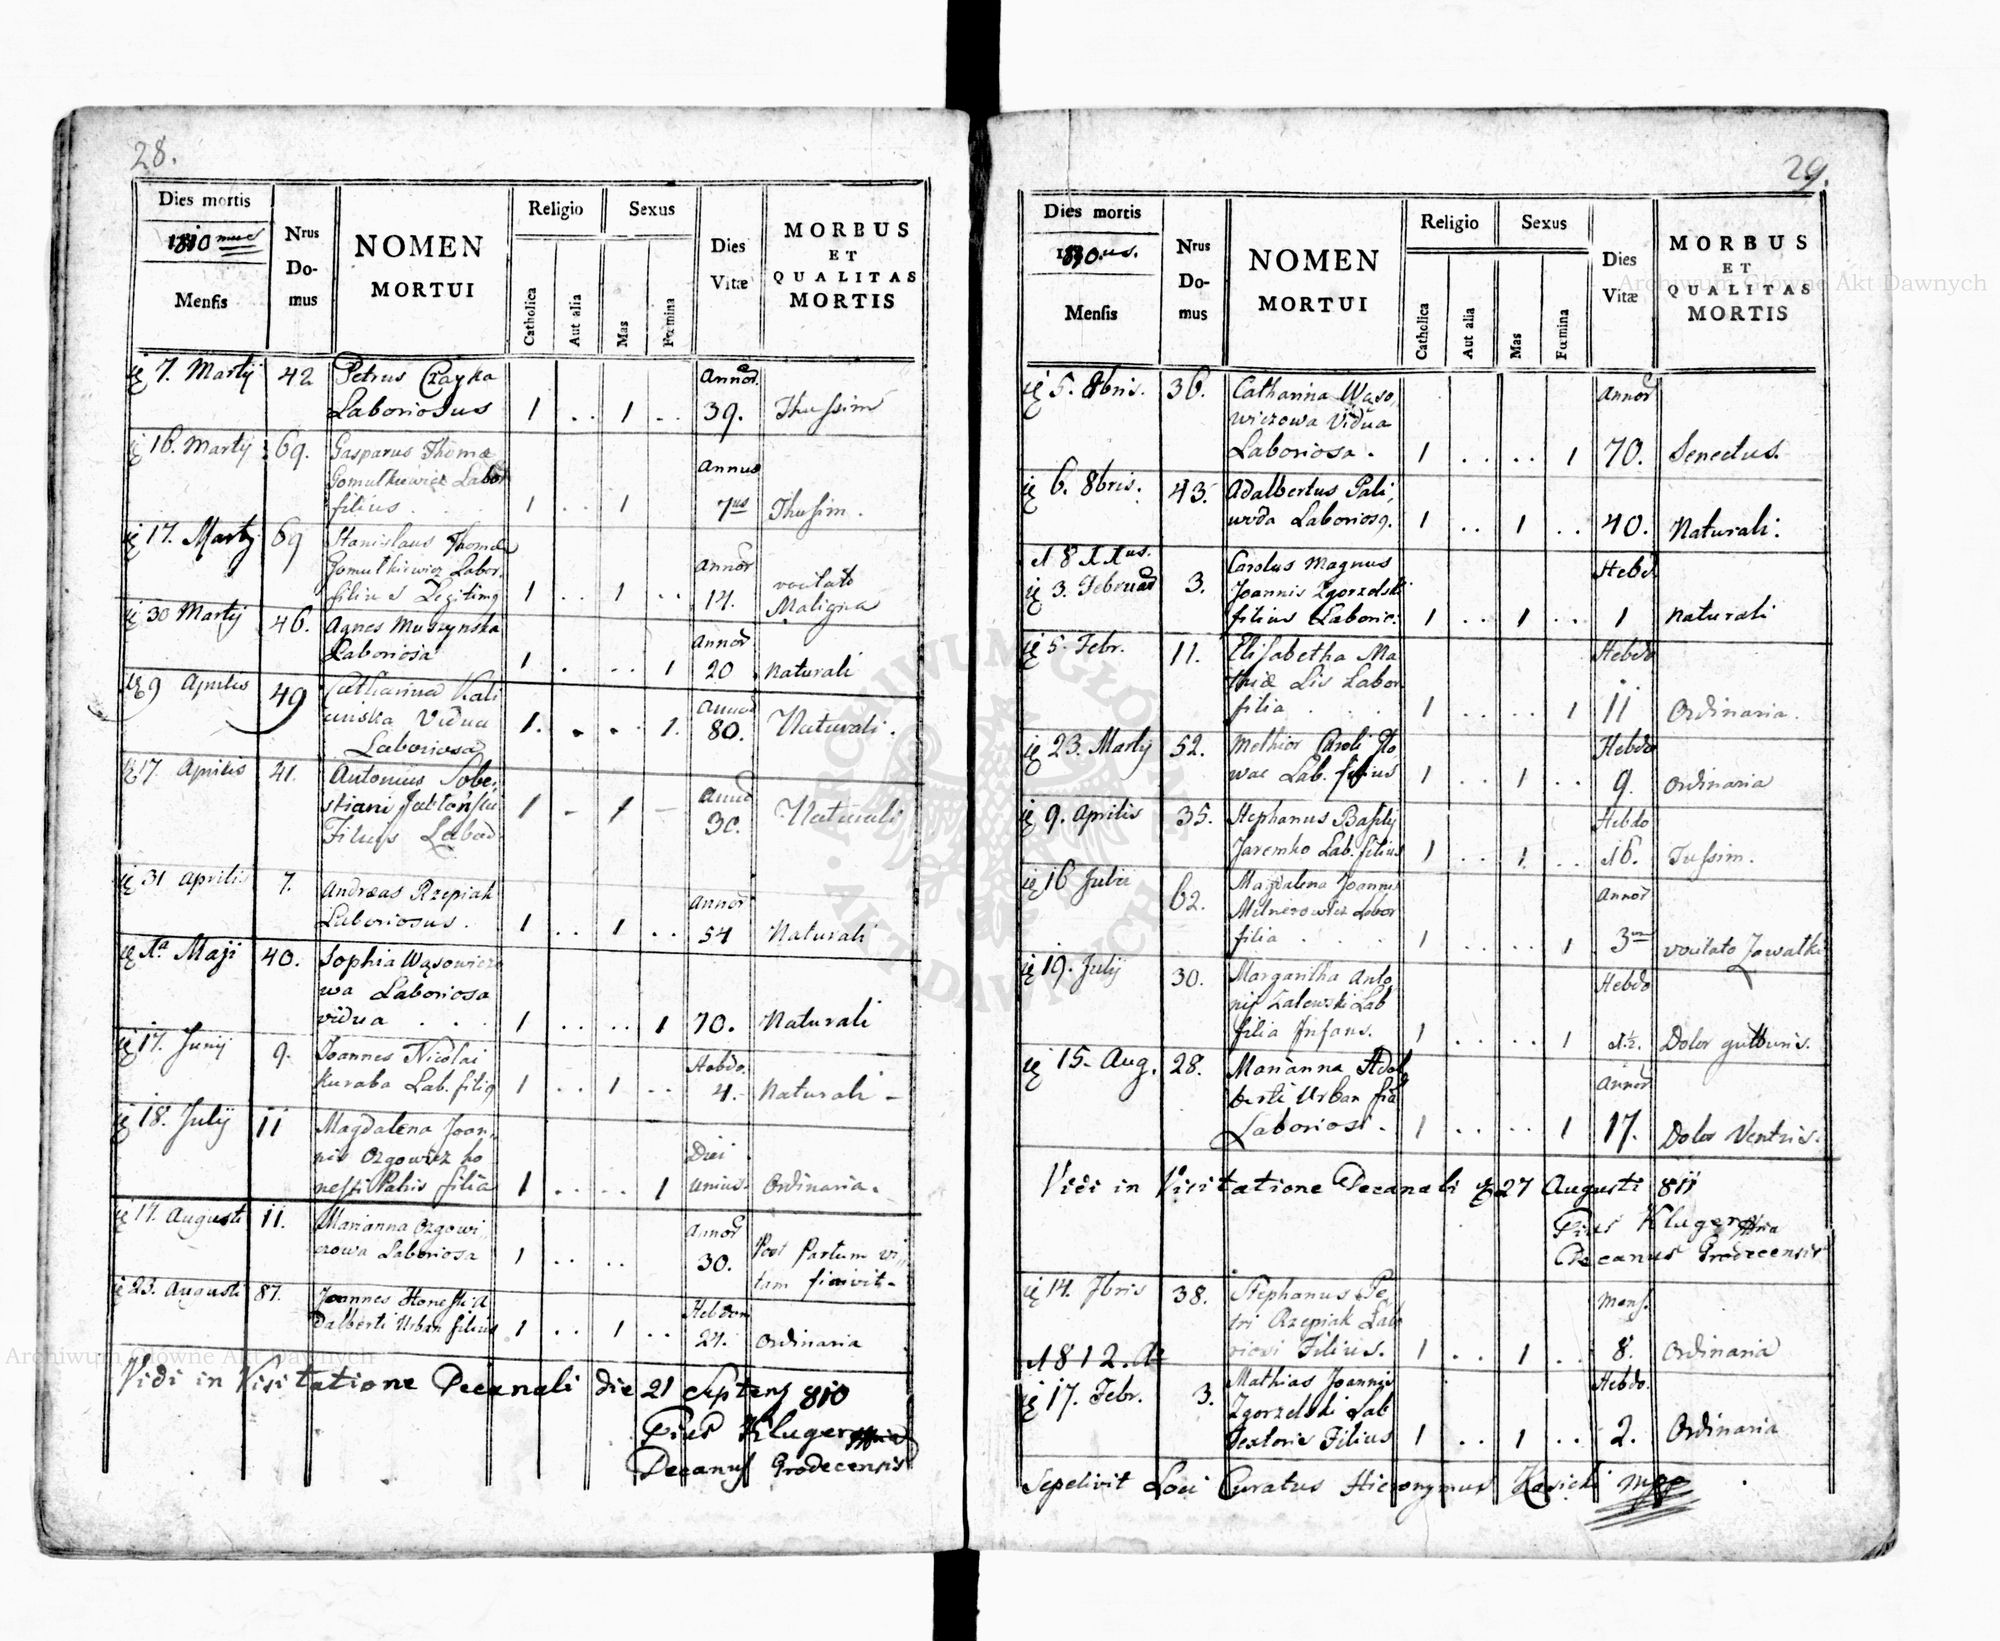 28.
Dies mortis
1810mus
Mensis
Nrus
Do-
mus
NOMEN
MORTUI
Religio
Catholica
Aut alia
Sexus
Mas
Fœmina
Dies
Vitæ
MORBUS
ET
QUALITAS
MORTIS
7. Martij 42 Petrus Czayka Annor
Laboriosus 1 .. 1 .. 39. Thussim
16. Martij 69. Gasparus Thomæ Annus
Gomulkiewicz Labor
filius . 1 .. 1 7us Thusim.
17. Martij 69 Stanislaus Thomæ Annor
Gomulkiewicz Labor. vocitato
filius Legitimq 1 .. 1 .. 14. Maligna
30 Martij 46. Agnes Muszynska Annor
Laboriosa 1 . .. 1 20 Naturali
9 Aprilis 49 Catharina Kali
Vidua 1. . . 1. 80. Naturali.
Laboriosa
17. Aprilis 41. Antonius Sobe
stiani 1 - 1 - 30. Naturali
Filius
31 Aprilis 7. Andreas Rzepiak Annor
Laboriosus. 1 .. 1 .. 54 Naturali
Maji 40. Sophia Wąsowiczo
wa Laboriosa
vidua . . . 1 .. .. 1 70. Naturali
17. Junij 9. Joannes Nicolai Hebdo.
Kuraba Lab. filiq 1 .. 1 .. 4. Naturali -
18. July 11 Magdalena Joan,
nis Ozgowicz ho Diei
nesti Patris filia 1 .. .. 1 unius. Ordinaria.
17. Augusti 11. Marianna Ozgowi Annor Post Partum vi,
czowa Laboriosa 1 .. .. 30. tam finivit.
23. Augusti 87. Joannes Honesti A Hebdom
dalberti Urban filius 1 .. 1 .. 27. Ordinaria
Vidi in Visitatione Decanali die 21 Septemb 810
Pius Kluger
Decanus Grodecensis
29.
Dies mortis
1810.us.
Mensis
Nrus
Do-
mus
NOMEN
MORTUI
Religio
Catholica
Aut alia
Sexus
Mas
Fœmina
Dies
Vitæ
MORBUS
ET
QUALITAS
MORTIS
5. 8bris. 36. Catharina Wąso, Annor
wiczowa Vidua
Laboriosa. 1 .. .. 1 70. Senectus.
6. 8bris. 43. Adalbertus Pali,
woda Laboriosq. 1 .. 1 .. 40. Naturali.
1811us. Carolus Magnus Hebd
3. Februar 3. Joannis Zgorzelski
filius Laborio. 1 .. 1 .. 1 Naturali
5. Febr. 11. Elisabetha Ma Hebdo
thiæ Lis Labor.
filia . . . 1 .. .. 1 11 Ordinaria.
23. Martij 52. Melhior Caroli Hebdo
Lab. filius 1 .. 1 .. 9. Ordinaria
9. Aprilis 35. Stephanus Basily Hebdo
Jaremko Lab. filius 1 .. 1 .. 16. Tussim.
16 62. Magdalena Joannis Annor
Milnerowicz Labor
filia . . . 1 .. .. 1 3um vocitato
19. July 30. Margaritha Anto Hebdo
nij Zalewski Lab
filia Infans. 1 .. .. 1 1½. Dolor gutturis.
15. Aug. 28. Marianna Adal Annor
berti Urban fia
Laboriosi. 1 .. .. 1 17. Dolor Ventris.
Vidi in Visitatione Decanali 27 Augusti 811
Pius Kluger
Decanus Grodecensis
14. 7bris 38. Stephanus Pe, Mens.
tri Rzepiak Lab
oriosi Filius. 1 .. 1 .. 8. Ordinaria
1812.
17. Febr. 3. Mathias Joannis Hebdo.
Zgorzelski Lab
textoris Filius 1 .. 1 .. 2. Ordinaria
Sepelivit Loci Curatus Hieronymus
Archiwum Główne Akt Dawnych
Archiwum Główne Akt Dawnych
ARCHIWUM GŁÓWNE
AKT DAWNYCH